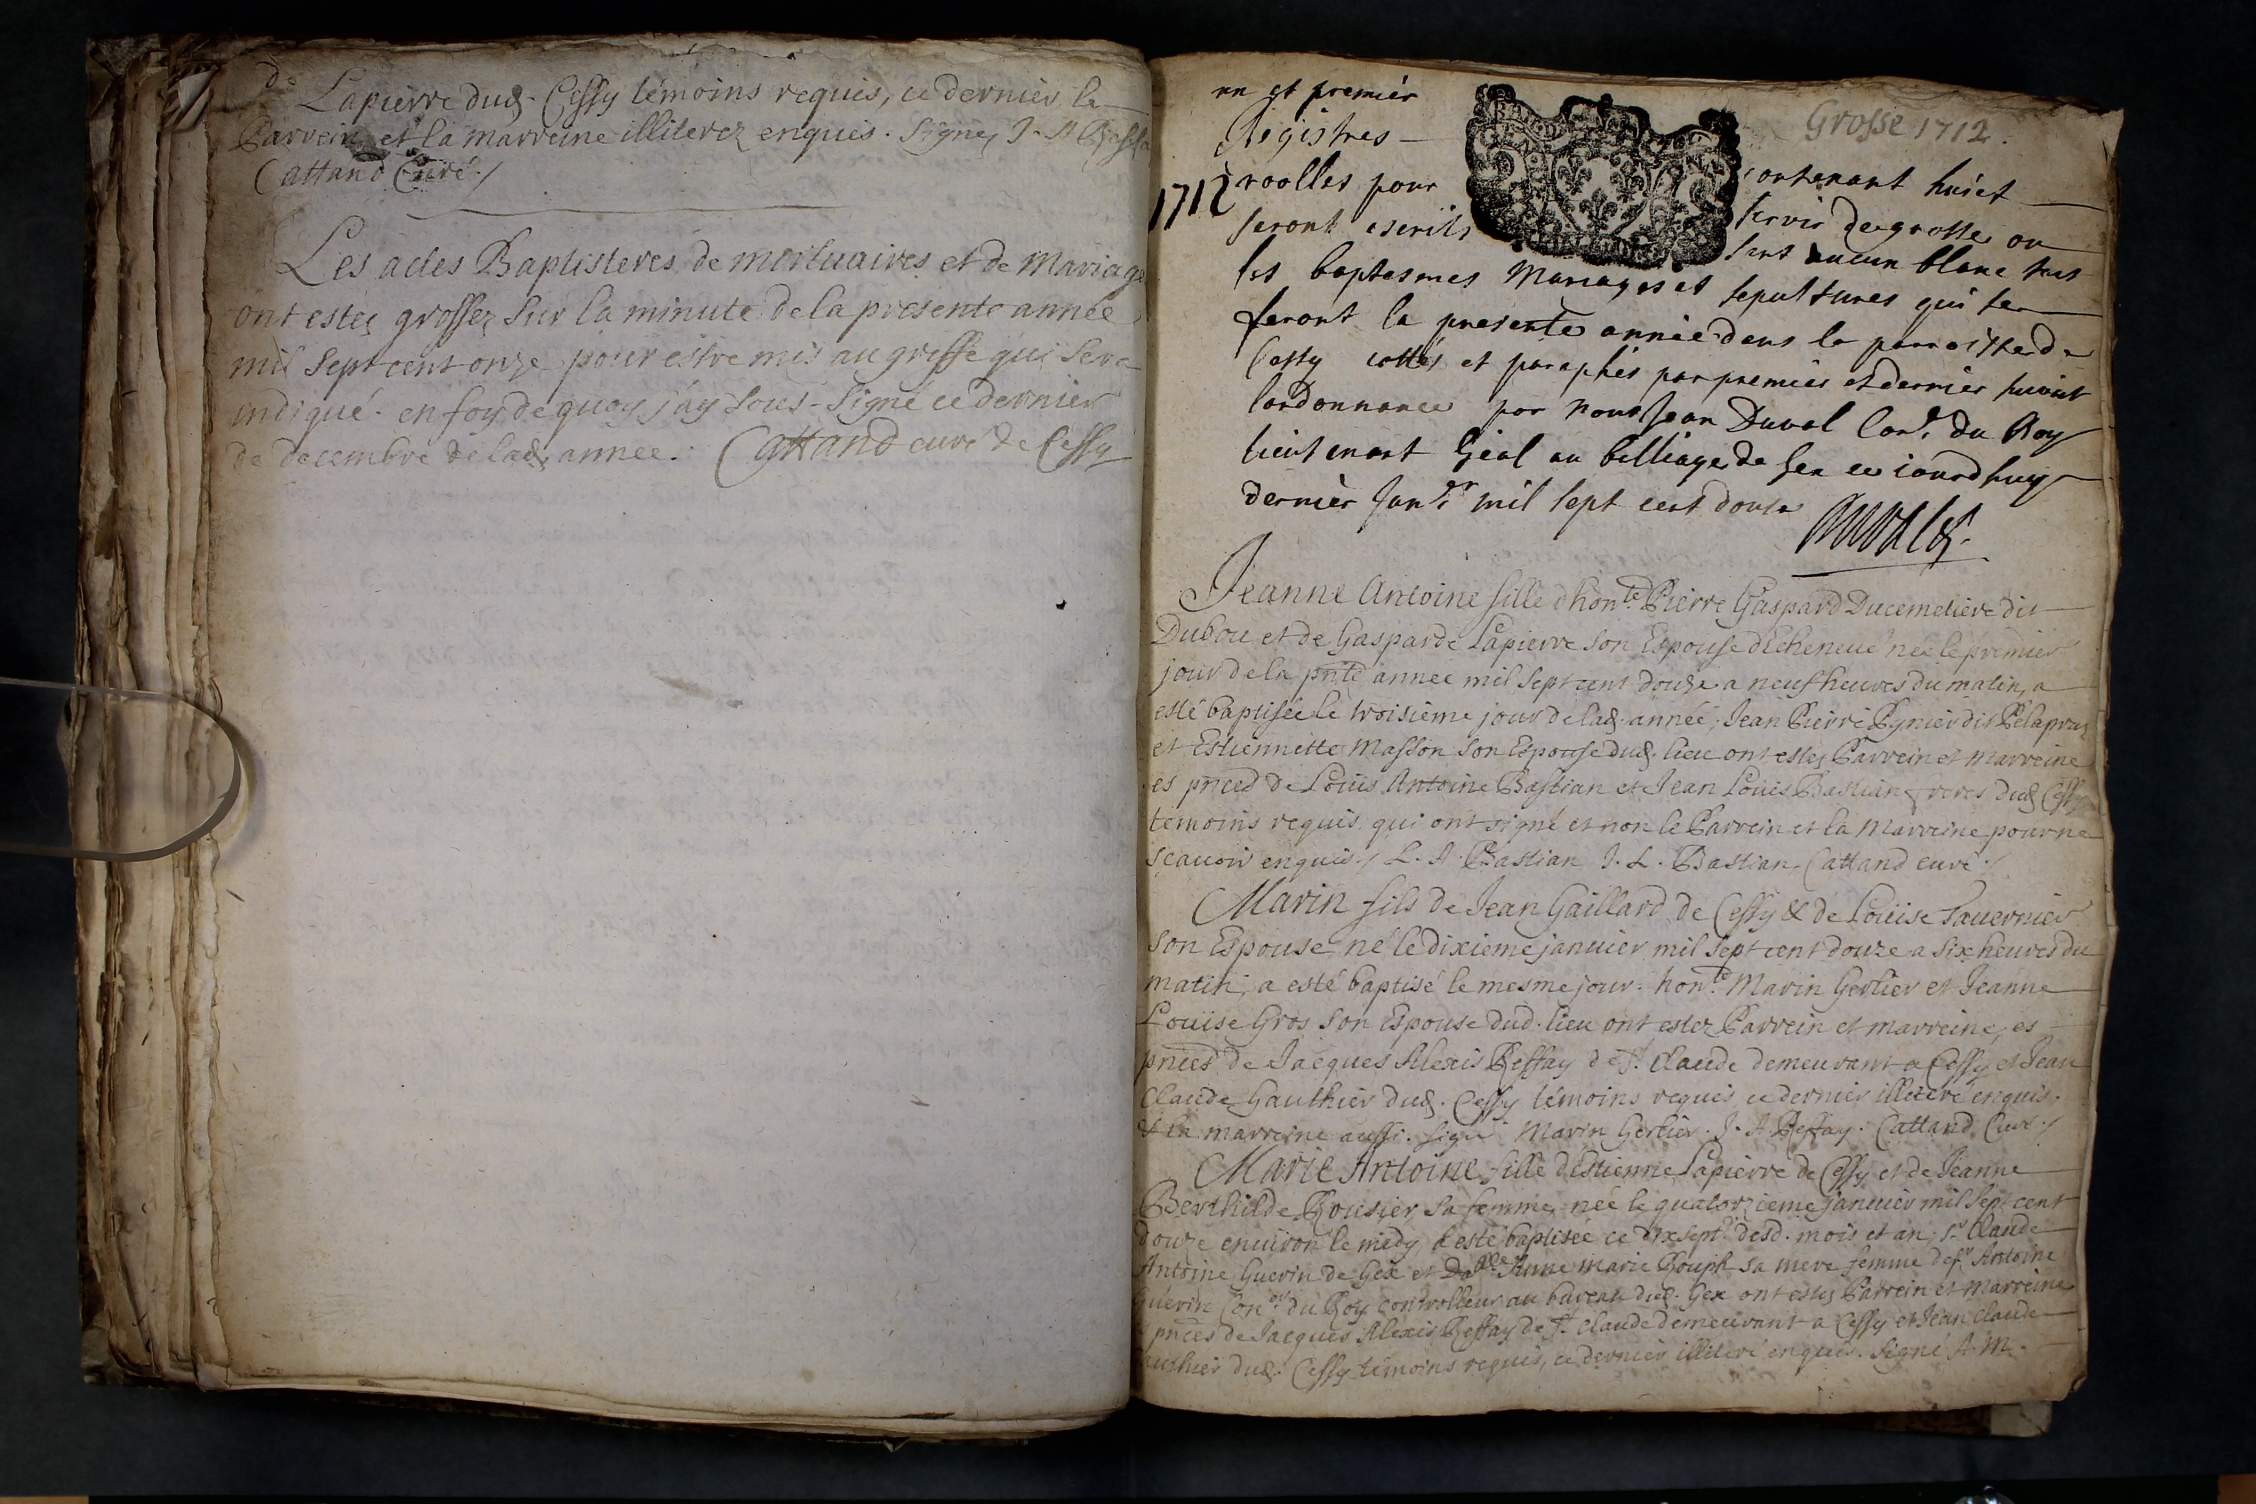 de Lapierre dud. Cessy témoins requis, ce dernier le
Parrein, et la marreine illiterez enquis. Signez J. A Reffa
Cattand Curé ./
Les actes Baptisteres de mortuaires et de Mariage
ont estez grossez sur la minute de la presente année
mil sept cent onze pour estre mis au greffe qui sera
indiqué. en foy de quoy j'ay sous-signé ce dernier
de decembre de lad. annee. Cattand curé de Cessy
Grosse 1712.
1712
un et premiér
Registres contenant huict
roolles pour servir de grosse ou
seront escrits sans aucun blanc tous
les baptesmes Mariages et sepultures qui se
feront la presente année dans la parroisse de
Cessy cottés et paraphés par premier et dernier suivant
lordonnance par nous Jean Duval Conr. du Roy
lieutenant Gèal au balliage de Gex ce iourdhuy
dernièr Janer mil sept cent douze
Duval
Jeanne Antoine fille d'honte. Pierre Gaspard Ducemetiere dit
Dubou et de Gasparde Lapierre son Espouse d'Echeneué née le premier
jour de la pnte annee mil sept cent douze a neuf heures du matin, a
esté baptisée le troisième jour de lad. année; Jean Pierre Rynier dit Pelapraz
et Estiennette Masson son Espouse dud. lieu ont estez Parrein et Marreine
es pnced de Louis Antoine Bastian et Jean Louis Bastian freres dud Cessy
temoins requis qui ont signé et non le Parrein et la Marreine pour ne
sçavoir enquis ./ L. A. Bastian J. L. Bastian. Cattand curé ./
Marin fils de Jean Gaillard de Cessy & de Loüise Tavernier
son Espouse, né le dixieme januier mil sept cent douze a six heures du
matin, a esté baptisé le mesme jour. honte. Marin Gerlier et Jeanne
Loüise Gros son Espouse dud. lieu ont estez Parrein et marreine, es
pnces de Jacques Alexis Reffay de St. Claude demeurant a Cessy et Jean
Claude Gauthier dud. Cessy témoins requis ce dernier illiteré enquis.
& la marreine aussi. signé Marin Gerlier. J. A Reffay. Cattand Curé ./
Marie Antoine fille d'Estienne Lapierre de Cessy et de Jeanne
Berthilde Rousier sa femme, née le quatorzieme januiér mil sept cent
douze environ le midy a esté baptisée ce dix sept. desd. mois et an, Sr Claude
Antoine Guerin de Gex et Dalle Anne Marie Gouph sa mere femme de sr Antoine
Guerin Conr. du Roy controlleur au bureau dud. Gex ont estez Parrein et Marreine
pnces de Jacques Alexis Reffay de St. Claude demeurant a Cessy et Jean Claude
authier dud. Cessy témoins requis, ce dernier illiteré enquis. Signé A. M.